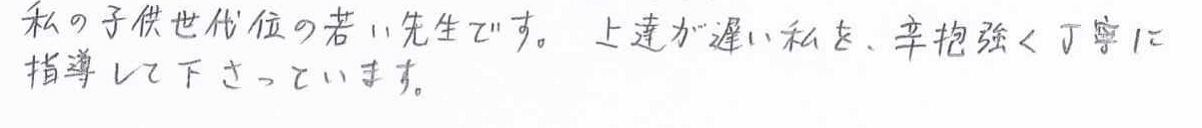 私の子供世代位の若い先生です。 上達が遅い私を、辛抱強く丁寧に
指導して下さっています。